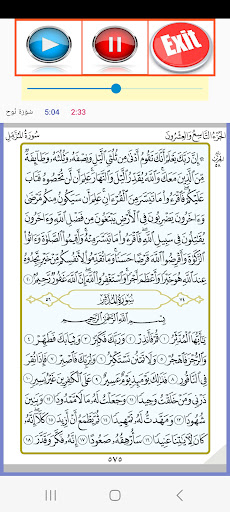 Exit
سورة نوح 5:04 2:33
الجُزْءُ التَّاسِعُ وَالعِشْرُونَ سُورَةُ المُزَّمِّل
۞ إِنَّ رَبَّكَ يَعْلَمُ أَنَّكَ تَقُومُ أَدْنَىٰ مِن ثُلُثَيِ ٱلَّيْلِ وَنِصْفَهُۥ وَثُلُثَهُۥ وَطَآئِفَةٌ
مِّنَ ٱلَّذِينَ مَعَكَۚ وَٱللَّهُ يُقَدِّرُ ٱلَّيْلَ وَٱلنَّهَارَۚ عَلِمَ أَن لَّن تُحْصُوهُ فَتَابَ
عَلَيْكُمْۖ فَٱقْرَءُوا۟ مَا تَيَسَّرَ مِنَ ٱلْقُرْءَانِۚ عَلِمَ أَن سَيَكُونُ مِنكُم مَّرْضَىٰ
وَءَاخَرُونَ يَضْرِبُونَ فِى ٱلْأَرْضِ يَبْتَغُونَ مِن فَضْلِ ٱللَّهِۙ وَءَاخَرُونَ
يُقَٰتِلُونَ فِى سَبِيلِ ٱللَّهِۖ فَٱقْرَءُوا۟ مَا تَيَسَّرَ مِنْهُۚ وَأَقِيمُوا۟ ٱلصَّلَوٰةَ وَءَاتُوا۟
ٱلزَّكَوٰةَ وَأَقْرِضُوا۟ ٱللَّهَ قَرْضًا حَسَنًاۚ وَمَا تُقَدِّمُوا۟ لِأَنفُسِكُم مِّنْ خَيْرٍ تَجِدُوهُ
عِندَ ٱللَّهِ هُوَ خَيْرًا وَأَعْظَمَ أَجْرًاۚ وَٱسْتَغْفِرُوا۟ ٱللَّهَۖ إِنَّ ٱللَّهَ غَفُورٌ رَّحِيمٌۢ ٢٠
سُورَةُ المُدَّثِّر
بِسْمِ ٱللَّهِ ٱلرَّحْمَٰنِ ٱلرَّحِيمِ
يَٰٓأَيُّهَا ٱلْمُدَّثِّرُ ١ قُمْ فَأَنذِرْ ٢ وَرَبَّكَ فَكَبِّرْ ٣ وَثِيَابَكَ فَطَهِّرْ ٤
وَٱلرُّجْزَ فَٱهْجُرْ ٥ وَلَا تَمْنُن تَسْتَكْثِرُ ٦ وَلِرَبِّكَ فَٱصْبِرْ ٧ فَإِذَا نُقِرَ
فِى ٱلنَّاقُورِ ٨ فَذَٰلِكَ يَوْمَئِذٍ يَوْمٌ عَسِيرٌ ٩ عَلَى ٱلْكَٰفِرِينَ غَيْرُ يَسِيرٍ ١٠
ذَرْنِى وَمَنْ خَلَقْتُ وَحِيدًا ١١ وَجَعَلْتُ لَهُۥ مَالًا مَّمْدُودًا ١٢ وَبَنِينَ
شُهُودًا ١٣ وَمَهَّدتُّ لَهُۥ تَمْهِيدًا ١٤ ثُمَّ يَطْمَعُ أَنْ أَزِيدَ ١٥ كَلَّآۖ إِنَّهُۥ
كَانَ لِءَايَٰتِنَا عَنِيدًا ١٦ سَأُرْهِقُهُۥ صَعُودًا ١٧ إِنَّهُۥ فَكَّرَ وَقَدَّرَ ١٨
٥٧٥